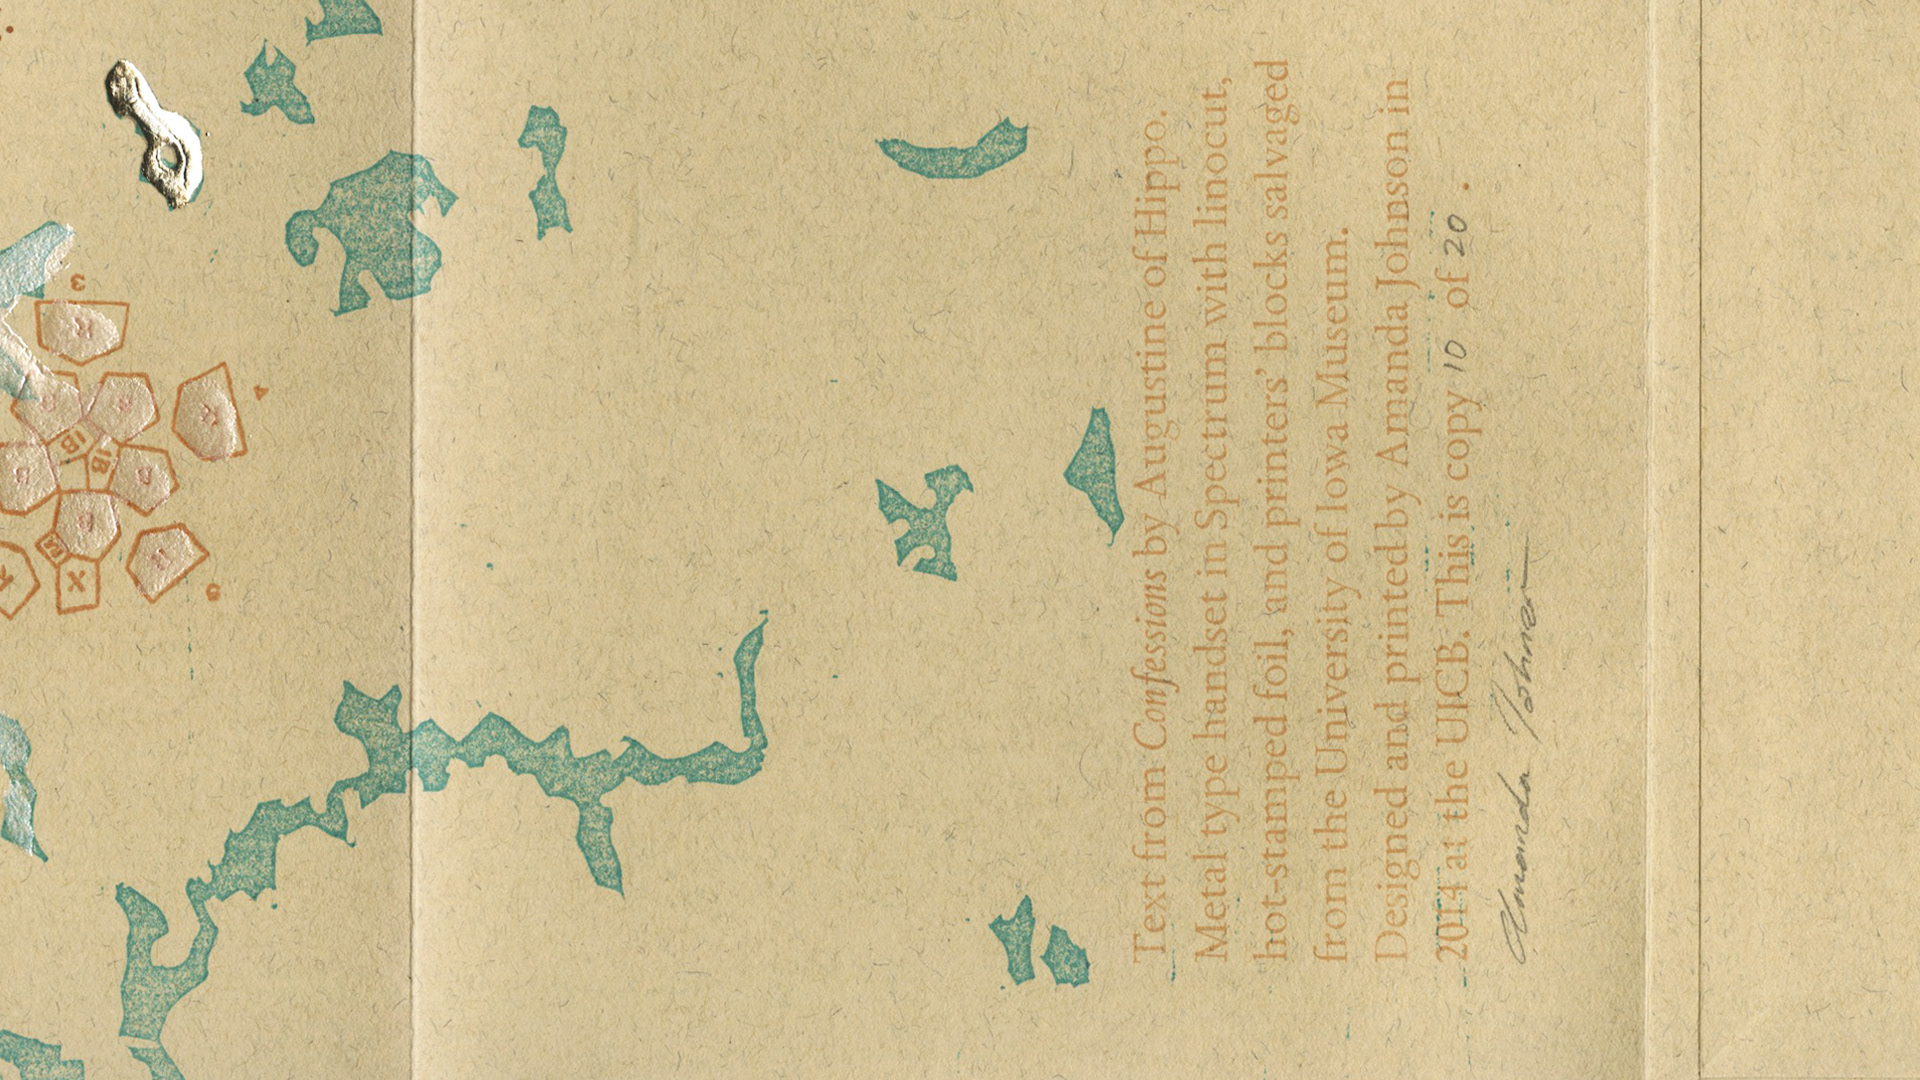 Text from Confessions by Augustine of Hippo.
Metal type handset in Spectrum with linocut,
hot-stamped foil, and printers’ blocks salvaged
from the University of Iowa Museum.
Designed and printed by Amanda Johnson in
2014 at the UICB. This is copy 10 of 20.
Amanda Johnson
3
4
5
IB
IB
X